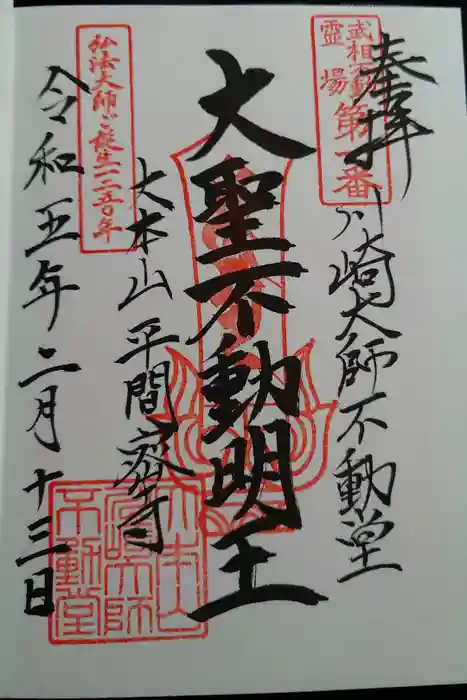 奉拝
武相不動
霊場 第一番
川崎大師不動堂
大聖不動明王
大本山 平間寺
弘法大師ご誕生一二五〇年
令和五年二月十三日
大本山
川崎大師
不動堂